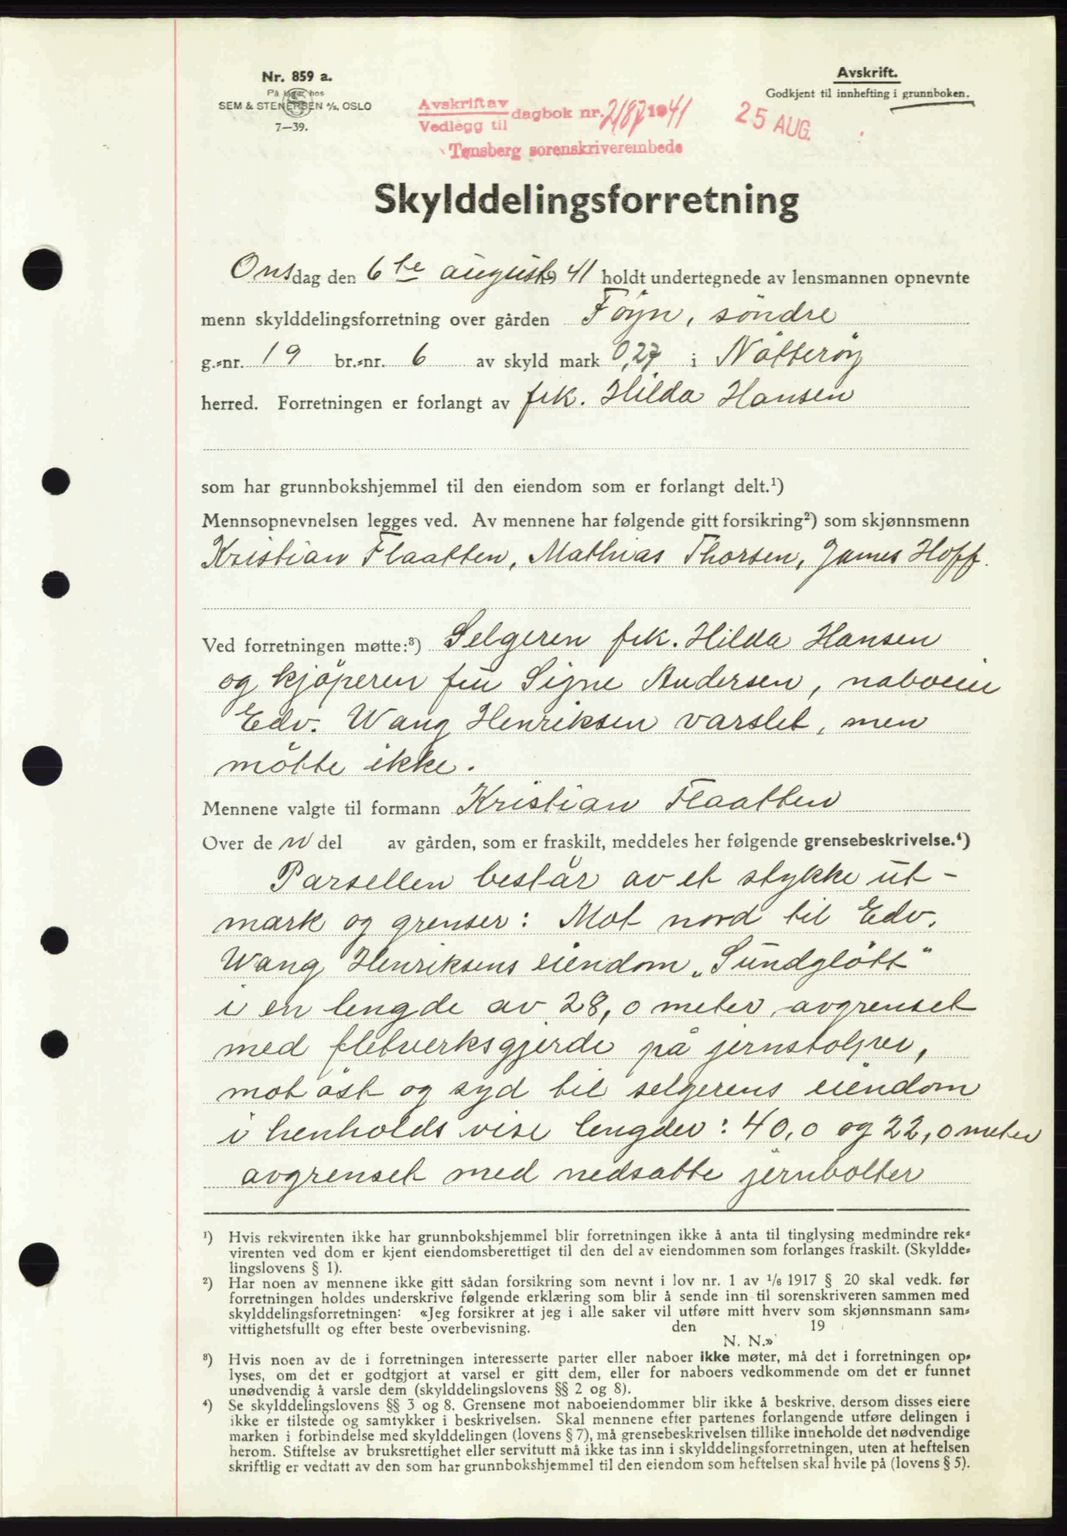 Nr. 859 a.
På lager hos
SEM & STENERSEN A/S, OSLO
7—39.
Avskrift.
Godkjent til innhefting i grunnboken.
Avskrift av
Vedlegg til
dagbok nr. 2187 1941
Tønsberg sorenskriverembede
25 AUG.
Skylddelingsforretning
Onsdag den 6te august 19 41 holdt undertegnede av lensmannen opnevnte
menn skylddelingsforretning over gården Föyn, söndre
g.-nr. 19 br.-nr. 6 av skyld mark 0,27 i Nötteröy
herred. Forretningen er forlangt av frk. Hilda Hansen
som har grunnbokshjemmel til den eiendom som er forlangt delt.¹)
Mennsopnevnelsen legges ved. Av mennene har følgende gitt forsikring²) som skjønnsmenn
Kristian Flaatten, Mathias Thorsen, James Hoff.
Ved forretningen møtte:³) Selgeren frk. Hilda Hansen
og kjöperen fru Signe Andersen, naboeier
Edv. Wang Henriksen varslet, men
mötte ikke.
Mennene valgte til formann Kristian Flaatten
Over de n del av gården, som er fraskilt, meddeles her følgende grensebeskrivelse.⁴)
Parsellen består av et stykke ut-
mark og grenser: Mot nord til Edv.
Wang Henriksens eiendom „Sundglött"
i en lengde av 28,0 meter avgrenset
med fletverksgjerde på jernstolper,
mot öst og syd til selgerens eiendom
i henholds vise lengder: 40,0 og 22,0 meter
avgrenset med nedsatte jernbolter
¹) Hvis rekvirenten ikke har grunnbokshjemmel blir forretningen ikke å anta til tinglysing medmindre rek-
virenten ved dom er kjent eiendomsberettiget til den del av eiendommen som forlanges fraskilt. (Skyldde-
lingslovens § 1).
²) Har noen av mennene ikke gitt sådan forsikring som nevnt i lov nr. 1 av 1/6 1917 § 20 skal vedk. før
forretningen holdes underskrive følgende erklæring som blir å sende inn til sorenskriveren sammen med
skylddelingsforretningen: «Jeg forsikrer at jeg i alle saker vil utføre mitt hverv som skjønnsmann sam-
vittighetsfullt og efter beste overbevisning. den 19
N. N.»
³) Hvis noen av de i forretningen interesserte parter eller naboer ikke møter, må det i forretningen op-
lyses, om det er godtgjort at varsel er gitt dem, eller for naboers vedkommende om det er funnet
unødvendig å varsle dem (skylddelingslovens §§ 2 og 8).
⁴) Se skylddelingslovens §§ 3 og 8. Grensene mot naboeiendommer blir ikke å beskrive, dersom disses eiere
ikke er tilstede og samtykker i beskrivelsen. Skal mennene efter partenes forlangende utføre delingen i
marken i forbindelse med skylddelingen (lovens § 7), må grensebeskrivelsen tillike inneholde det nødvendige
herom. Stiftelse av bruksrettighet eller servitutt må ikke tas inn i skylddelingsforretningen, uten at heftelsen
skriftlig er vedtatt av den som har grunnbokshjemmel til den eiendom som heftelsen skal hvile på (lovens § 5).